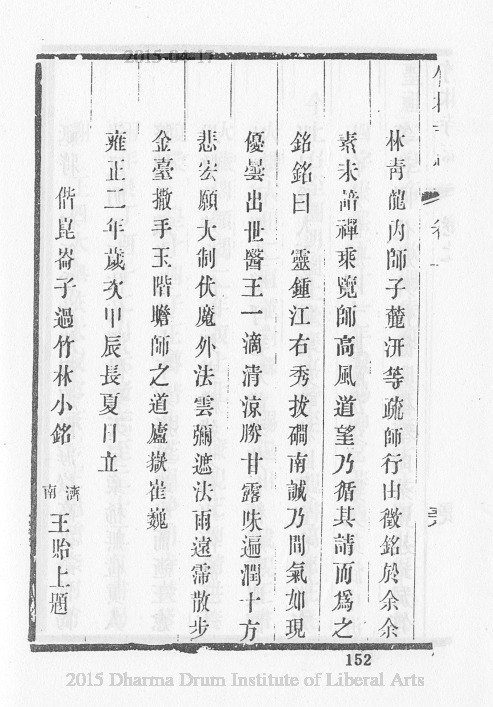 2015-04-17
林青龍内師子麓汧等疏師行由徵銘於余余
素未諳禪乘覽師高風道望乃循其請而爲之
銘銘曰　靈鍾江右秀拔磵南誠乃間氣如現
優曇出世醫王一滴清涼勝甘露味遍潤十方
悲宏願大制伏魔外法雲彌遮法雨遠霈散步
金臺撒手玉階瞻師之道廬嶽崔巍
雍正二年歲次甲辰長夏日立
偕崑崙子過竹林小銘　濟南王貽上題
152
2015 Dharma Drum Institute of Liberal Arts